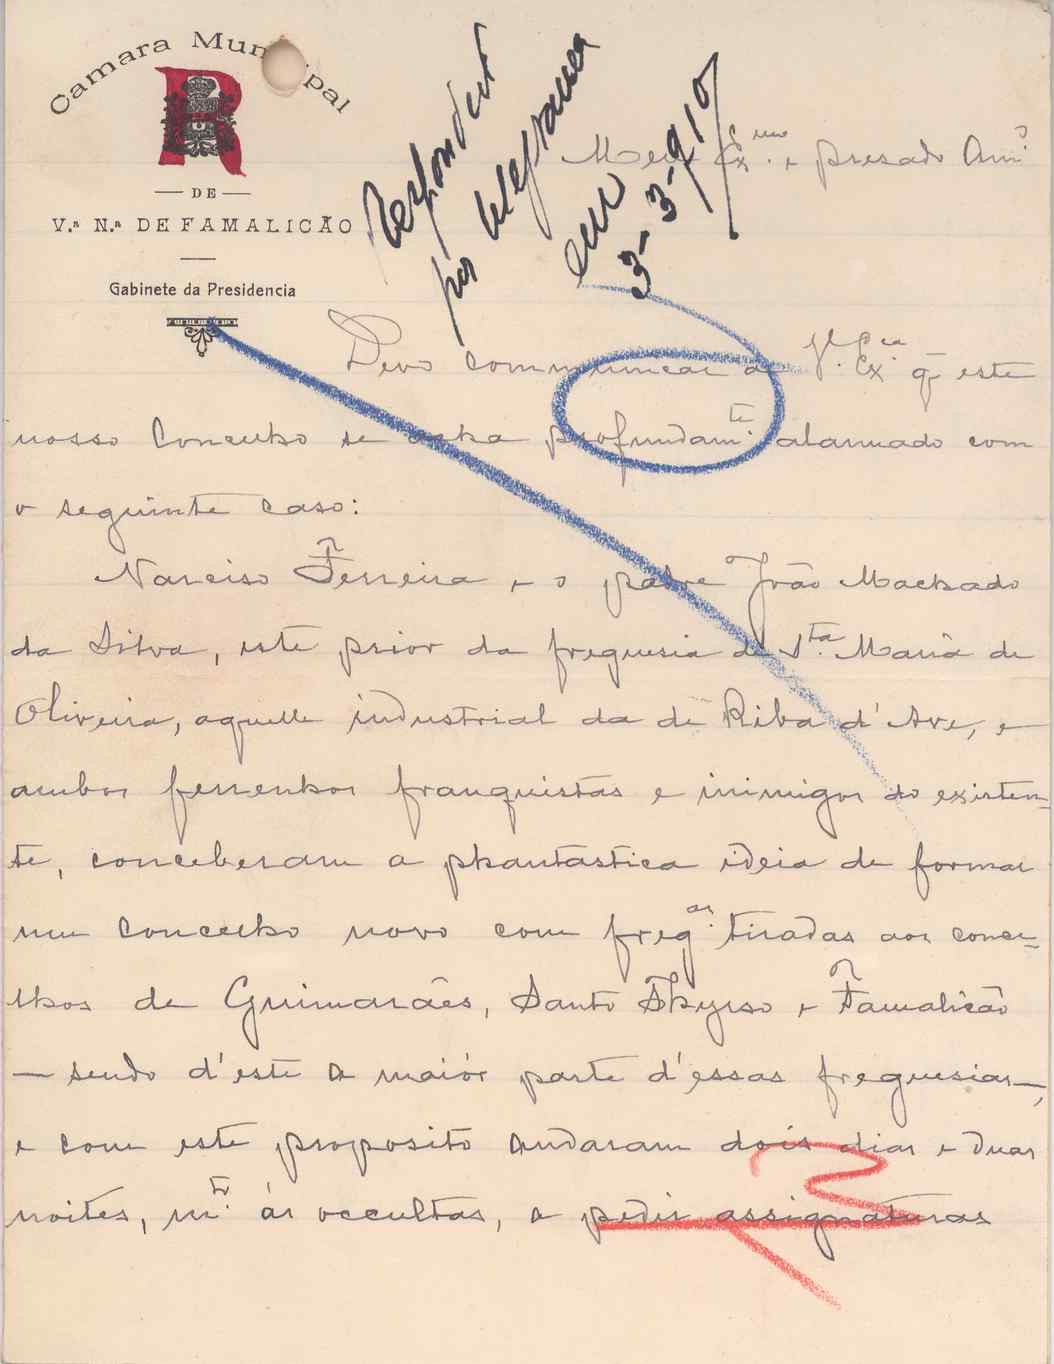 Camara Municipal
R
— DE —
V.ª N.ª DE FAMALICÃO
Gabinete da Presidencia
Respondeu
por
em
3-3-910
Meu Ex.mo e presado Am.º
Devo communicar a V. Ex.cia q̃ este
nosso Concelho se acha profundam.te alarmado com
o seguinte caso:
Narciso Ferreira e o padre João Machado
da Silva, este prior da freguesia de S.ta Maria de
Oliveira, aquelle industrial da de Riba d'Ave, e
ambos ferrenhos franquistas e inimigos do existen-
te, conceberam a phantastica ideia de formar
um Concelho novo com freg.as tiradas aos conce-
lhos de Guimarães, Santo Thyrso e Famalicão
— sendo d'este a maiór parte d'essas freguesias —,
e com este proposito andaram dois dias e duas
noites, m.to ás occultas, a pedir assignaturas